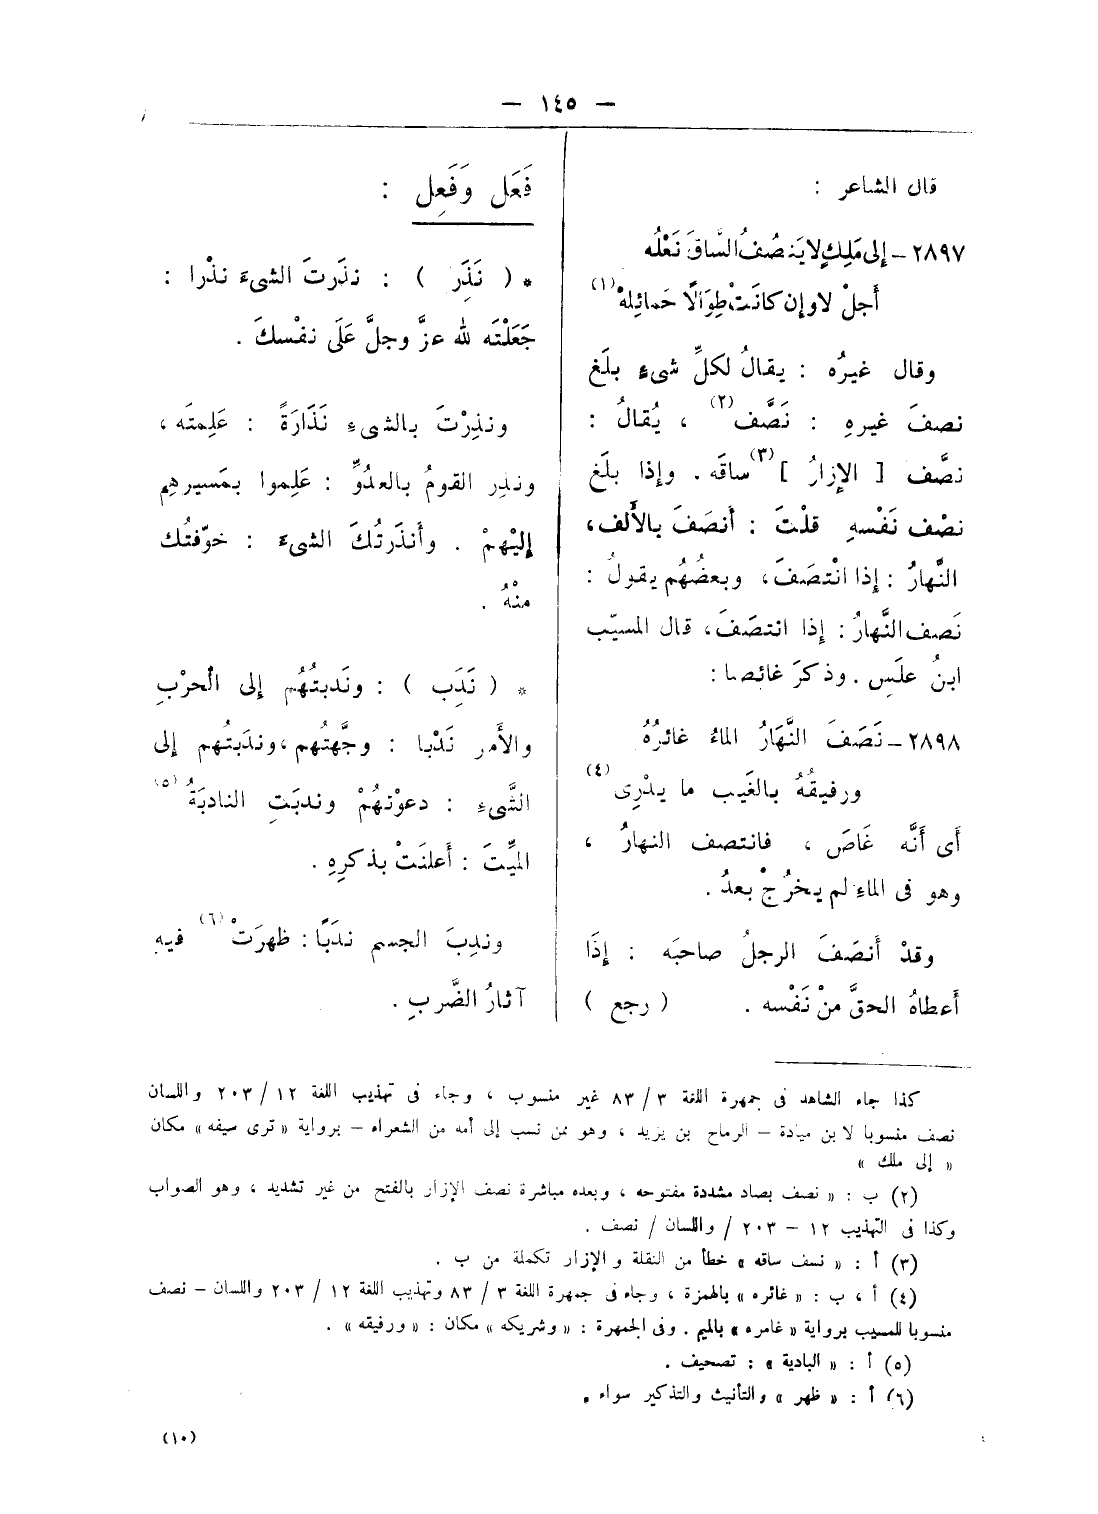 — ١٤٥ —
قال الشاعر :
٢٨٩٧ – إلى مَلِكٍ لا يَنصُفُ السَّاقَ نَعْلُه
أَجلْ لا وإن كانَتْ طِوَالًا حَمائِلهْ (١)
وقال غيرُه : يقالُ لكلِّ شىءٍ بلَغ
نصفَ غيرهِ : نَصَّف (٢) ، يُقالُ :
نصَّف [ الإزارُ ] (٣) ساقَه . وإذا بلَغ
نصْف نَفْسهِ قلْتَ : أنصَفَ بالأَلف ،
النَّهارُ : إذا انْتصَفَ ، وبعضُهُم يقولُ :
نَصف النَّهارُ : إذا انتصَفَ ، قال المسيّب
ابنُ علَس . وذكرَ غائصا :
٢٨٩٨ – نَصَفَ النَّهَارُ الماءُ غائرُهُ
ورفيقُهُ بالغَيب ما يدْرِى (٤)
أَى أَنَّه غَاصَ ، فانتصف النهارُ ،
وهو فى الماءِ لم يخرُجْ بعدُ .
وقدْ أَنصَفَ الرجلُ صاحبَه : إذَا
أَعطاهُ الحقَّ منْ نَفْسه . ( رجع )
فَعَل وَفَعِل :
* ( نَذَِر ) : نذَرتَ الشىءَ نذْرا :
جَعَلْتَه لله عزَّ وجلَّ عَلَى نفْسكَ .
ونذِرْتَ بالشىءِ نَذَارَةً : عَلِمتَه ،
ونذِر القومُ بالعدُوِّ : عَلِموا بمَسيرهِم
إِليْهِمْ . وأَنذَرتُكَ الشىءَ : خوّفتُك
منْهُ .
* ( نَدَِب ) : ونَدبتُهُم إلى الْحرْبِ
والأَمر نَدْبا : وجَّهتُهم ، وندَبتُهم إلى
الشَّىءِ : دعوْتهُمْ وندبَتِ النادبَةُ (٥)
الميِّتَ : أَعلنَتْ بذكرِهِ .
وندِبَ الجسم ندَبًا : ظهرَتْ (٦) فيه
آثارُ الضَّربِ .
كذا جاء الشاهد فى جمهرة اللغة ٣ / ٨٣ غير منسوب ، وجاء فى تهذيب اللغة ١٢ / ٢٠٣ واللسان
نصف منسوبا لابن ميادة – الرماح بن يزيد ، وهو ممن نسب إلى أمه من الشعراء – برواية « ترى سيفه » مكان
« إلى ملك »
(٢) ب : « نصف بصاد مشددة مفتوحه ، وبعده مباشرة نصف الإزار بالفتح من غير تشديد ، وهو الصواب
وكذا فى التهذيب ١٢ – ٢٠٣ / واللسان / نصف .
(٣) أ : « نسف ساقه » خطأ من النقلة و الإزار تكملة من ب .
(٤) أ ، ب : « غائره » بالهمزة ، وجاء فى جمهرة اللغة ٣ / ٨٣ وتهذيب اللغة ١٢ / ٢٠٣ واللسان – نصف
منسوبا للمسيب برواية « غامره » بالميم . وفى الجمهرة : « وشريكه » مكان : « ورفيقه » .
(٥) أ : « البادية » : تصحيف .
(٦) أ : « ظهر » والتأنيث والتذكير سواء .
(١٠)